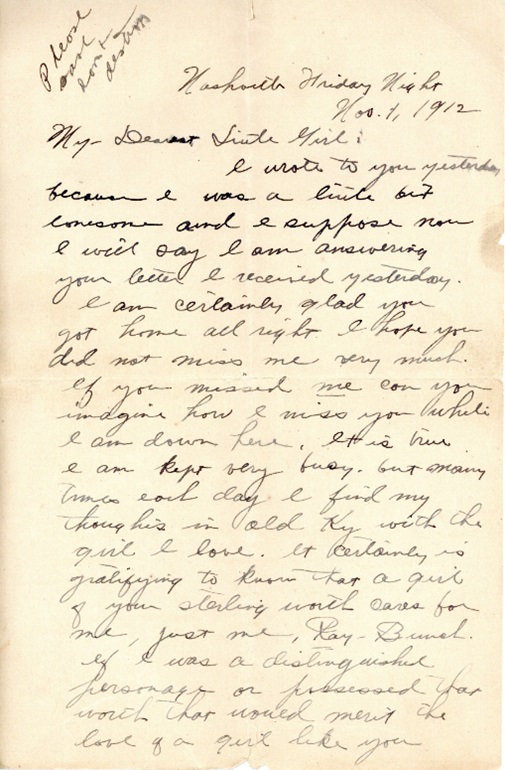 Please
save
don't
destroy
Nashville Friday Night
Nov. 1, 1912
My- Dearest Little Girl:
I wrote to you yesterday
because I was a little bit
lonesome and I suppose now
I will say I am answering
your letter I received yesterday.
I am certainly glad you
got home all right. I hope you
did not miss me very much.
If you missed me can you
imagine how I miss you while
I am down here. It is true
I am kept very busy. but many
times each day I find my
thoughts in old Ky with the
girl I love. It certainly is
gratifying to know that a girl
of your sterling worth cares for
me, just me, Ray- Bunch.
If I was a distinguished
personage or possessed that
worth that would merit the
love of a girl like you